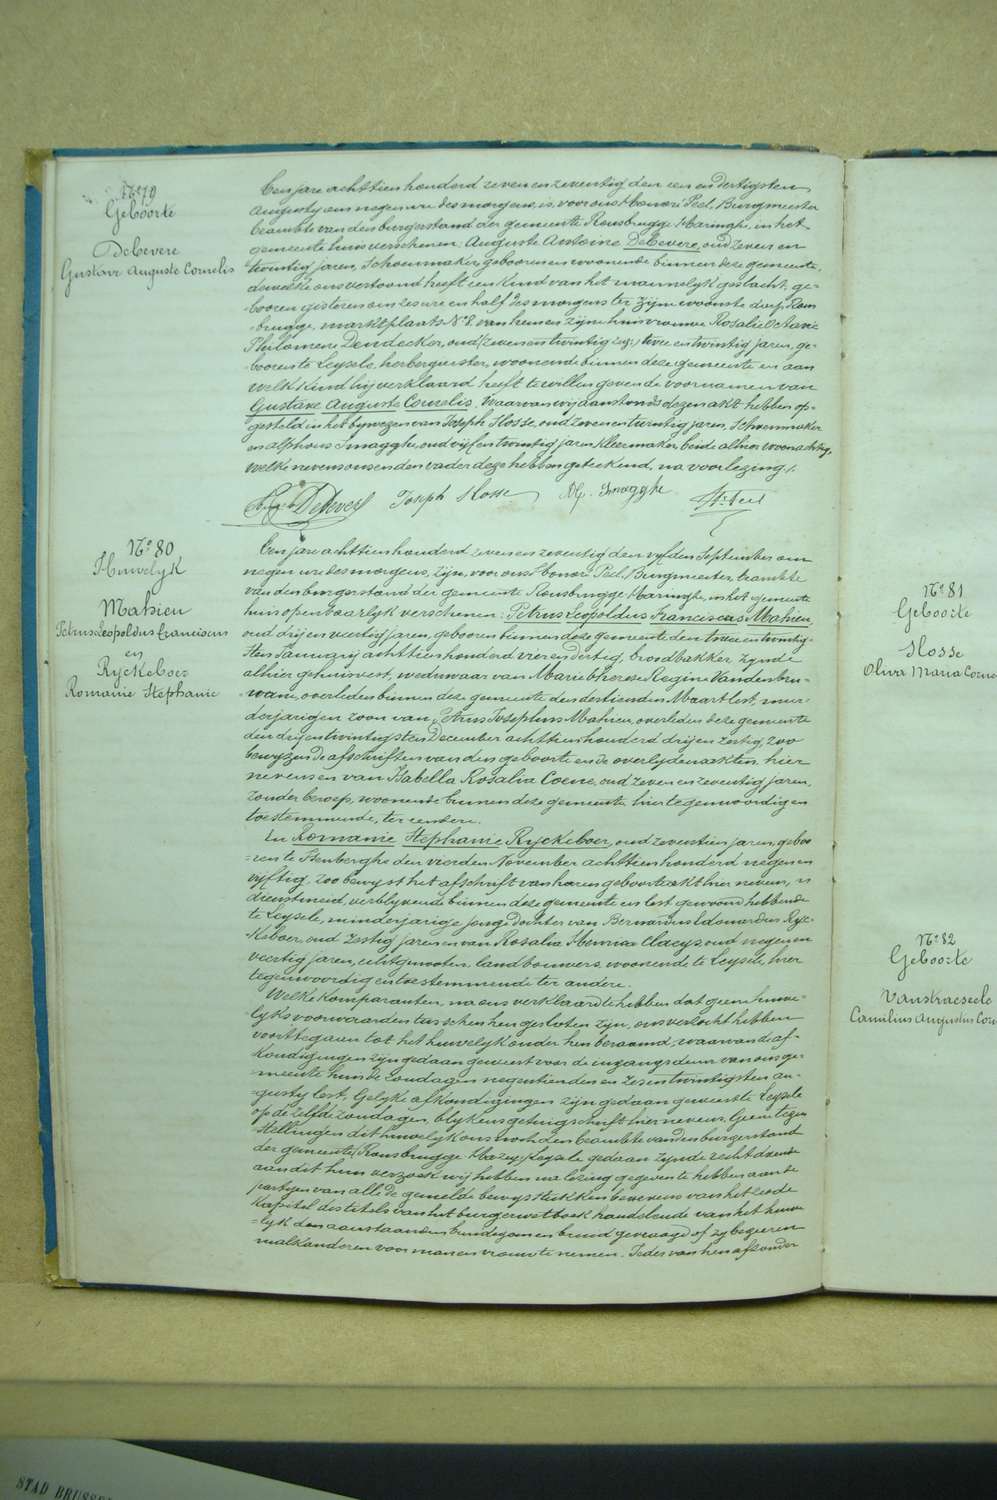 N° 79
Geboorte
Debevere
Gustave Auguste Cornelis
Een jare achttien honderd zeven en zeventig den een en dertigsten
Augusty om negen ure des morgens, is voor ons Honoré Peel, Burgmeester
beambte van den burgerstand der gemeente Rousbrugge-Haringhe, in het
gemeente huis verschenen: Auguste Antoine Debevere, oud zeven en
twintig jaren, Schoenmaker, geboren en woonende binnen deze gemeente,
dewelke ons vertoond heeft een kind van het mannelyk geslacht, ge-
boren gisteren om zes ure en half des morgens ter zijne woonste dorp Rous
-brugge, marktplaats N° 8, van hem en zijne huisvrouwe Rosalie Octavie
Philomene Dendecker, oud (zeven en twintig zeg:) twee en twintig jaren, ge-
-boren te Leysele, herbergierster, woonende binnen deze gemeente en aan
welk kind hij verklaard heeft te willen geven de voornamen van
Gustave Auguste Cornelis. Waarvan wij aanstonds dezen akt hebben op-
gesteld in het bywezen van Joseph Hosse, oud zeven en twintig jaren, Schoenmaker
en Alphons Smagghe, oud vijf en twintig jaren, kleermaker, beide alhier woonachtig,
welke nevens ons en den vader deze hebben geteekend, na voorlezing.
Aug. Debevere Joseph Hosse Al. Smagghe H. Peel
N° 80
Huwelyk
Mahieu
Petrus Leopoldus Franciscus
en
Ryckeboer
Romanie Stephanie
Een jare achttien honderd zeven en zeventig den vyfden September om
negen ure des morgens, zijn, voor ons Honoré Peel, Burgmeester, beambte
van den burgerstand der gemeente Rousbrugge-Haringhe, in het gemeente
huis openbaarlyk verschenen: Petrus Leopoldus Franciscus Mahieu,
oud drij en veertig jaren, geboren binnen deze gemeente den twee en twintig-
sten January achttien honderd vier en dertig, broodbakker, zynde
alhier gehuisvest, weduwaar van Marie Therese Regine Vandenbru-
wane, overleden binnen deze gemeente den destienden Maart lest, meer-
derjarigen zoon van Petrus Josephus Mahieu, overleden deze gemeente
den drij en twintigsten December achttien honderd drij en zestig, zoo
bewyzen de afschriften van den geboorte en de overlydenakten, hier
nevens en van Isabella Rosalia Coene, oud zeven en zeventig jaren,
zonder beroep, woonende binnen deze gemeente, hier tegenwoordig en
toestemmende, ter eendere.
En Romanie Stephanie Ryckeboer, oud zeventien jaren, geboo
=ren te Stenberghe den vierden November achttien honderd negen en
vyftig, zoo bewyst het afschrift van haren geboorteakt hier nevens,
dienstmeid, verblyvende binnen deze gemeente en lest gewoond hebbende
te Leysele, minderjarige jonge dochter van Bernardus Edouardus Ryc-
-keboer, oud zestig jaren en van Rosalia Henrica Claeys, oud negen en
veertig jaren, echtgenooten, landbouwers, woonende te Leysele, hier
tegenwoordig en toestemmende ter andere.
Welke komparanten, na ons verklaard te hebben dat geene huwe-
lyksvoorwaarden tusschen hen gesloten zijn, ons verzocht hebben
voort te gaan tot het huwelyk onder hen beraamd, waarvan de af-
kondigingen zijn gedaan geweest voor de ingangsdeur van ons ge-
meente huis de zondagen negentienden en zesentwintigsten au-
-gusty lest. Gelyke afkondigingen zijn gedaan geweest te Leysele
op de zelfde zondagen, blykens getuigschrift hier nevens. Geene tegen
stellingen dit huwelyk ons noch den beambte van den burgerstand
der gemeente (Rousbrugge-Ha zeg:) Leysele gedaan zynde recht doende
aan dit hun verzoek wij hebben na lezing gegeven te hebben aan de
partyen van alle de gemelde bewysstukken benevens van het zesde
kapittel des titels van het burgerwetboek handelende van het huwe
-lyk den aanstaanden bruidegom en bruid gevraagd of zy begeeren
malkanderen voor man en vrouw te nemen. Ieder van hen afzonder
N° 81
Geboorte
Hosse
Oliva Maria Corne
N° 82
Geboorte
Vanstraeseele
Camilius Augustus Cor
STAD BRUSSE